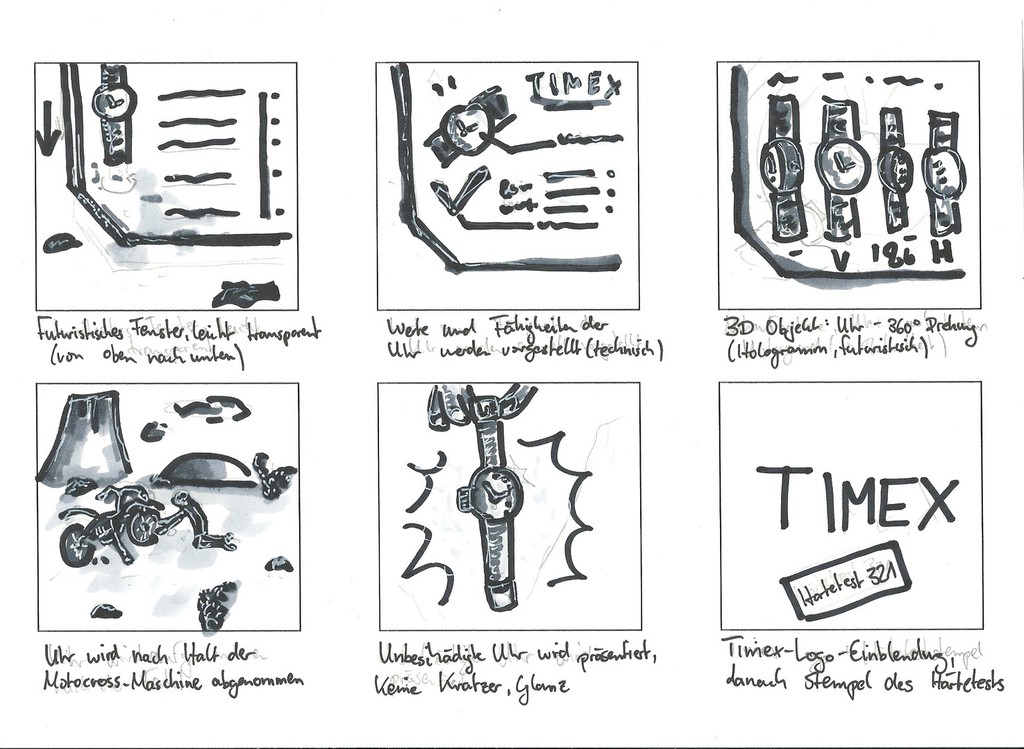 TIMEX
V 186 H
Futuristisches Fenster, leicht transparent
(von oben nach unten)
Werte und Fähigkeiten der
Uhr werden vorgestellt (technisch)
3D Objekte: Uhr - 360° Drehung
(Hologramm, futuristisch)
TIMEX
Härtetest 321
Uhr wird nach Halt der
Motocross-Maschine abgenommen
Unbeschädigte Uhr wird präsentiert,
Keine Kratzer, Glanz
Timex-Logo-Einblendung,
danach Stempel des Härtetests